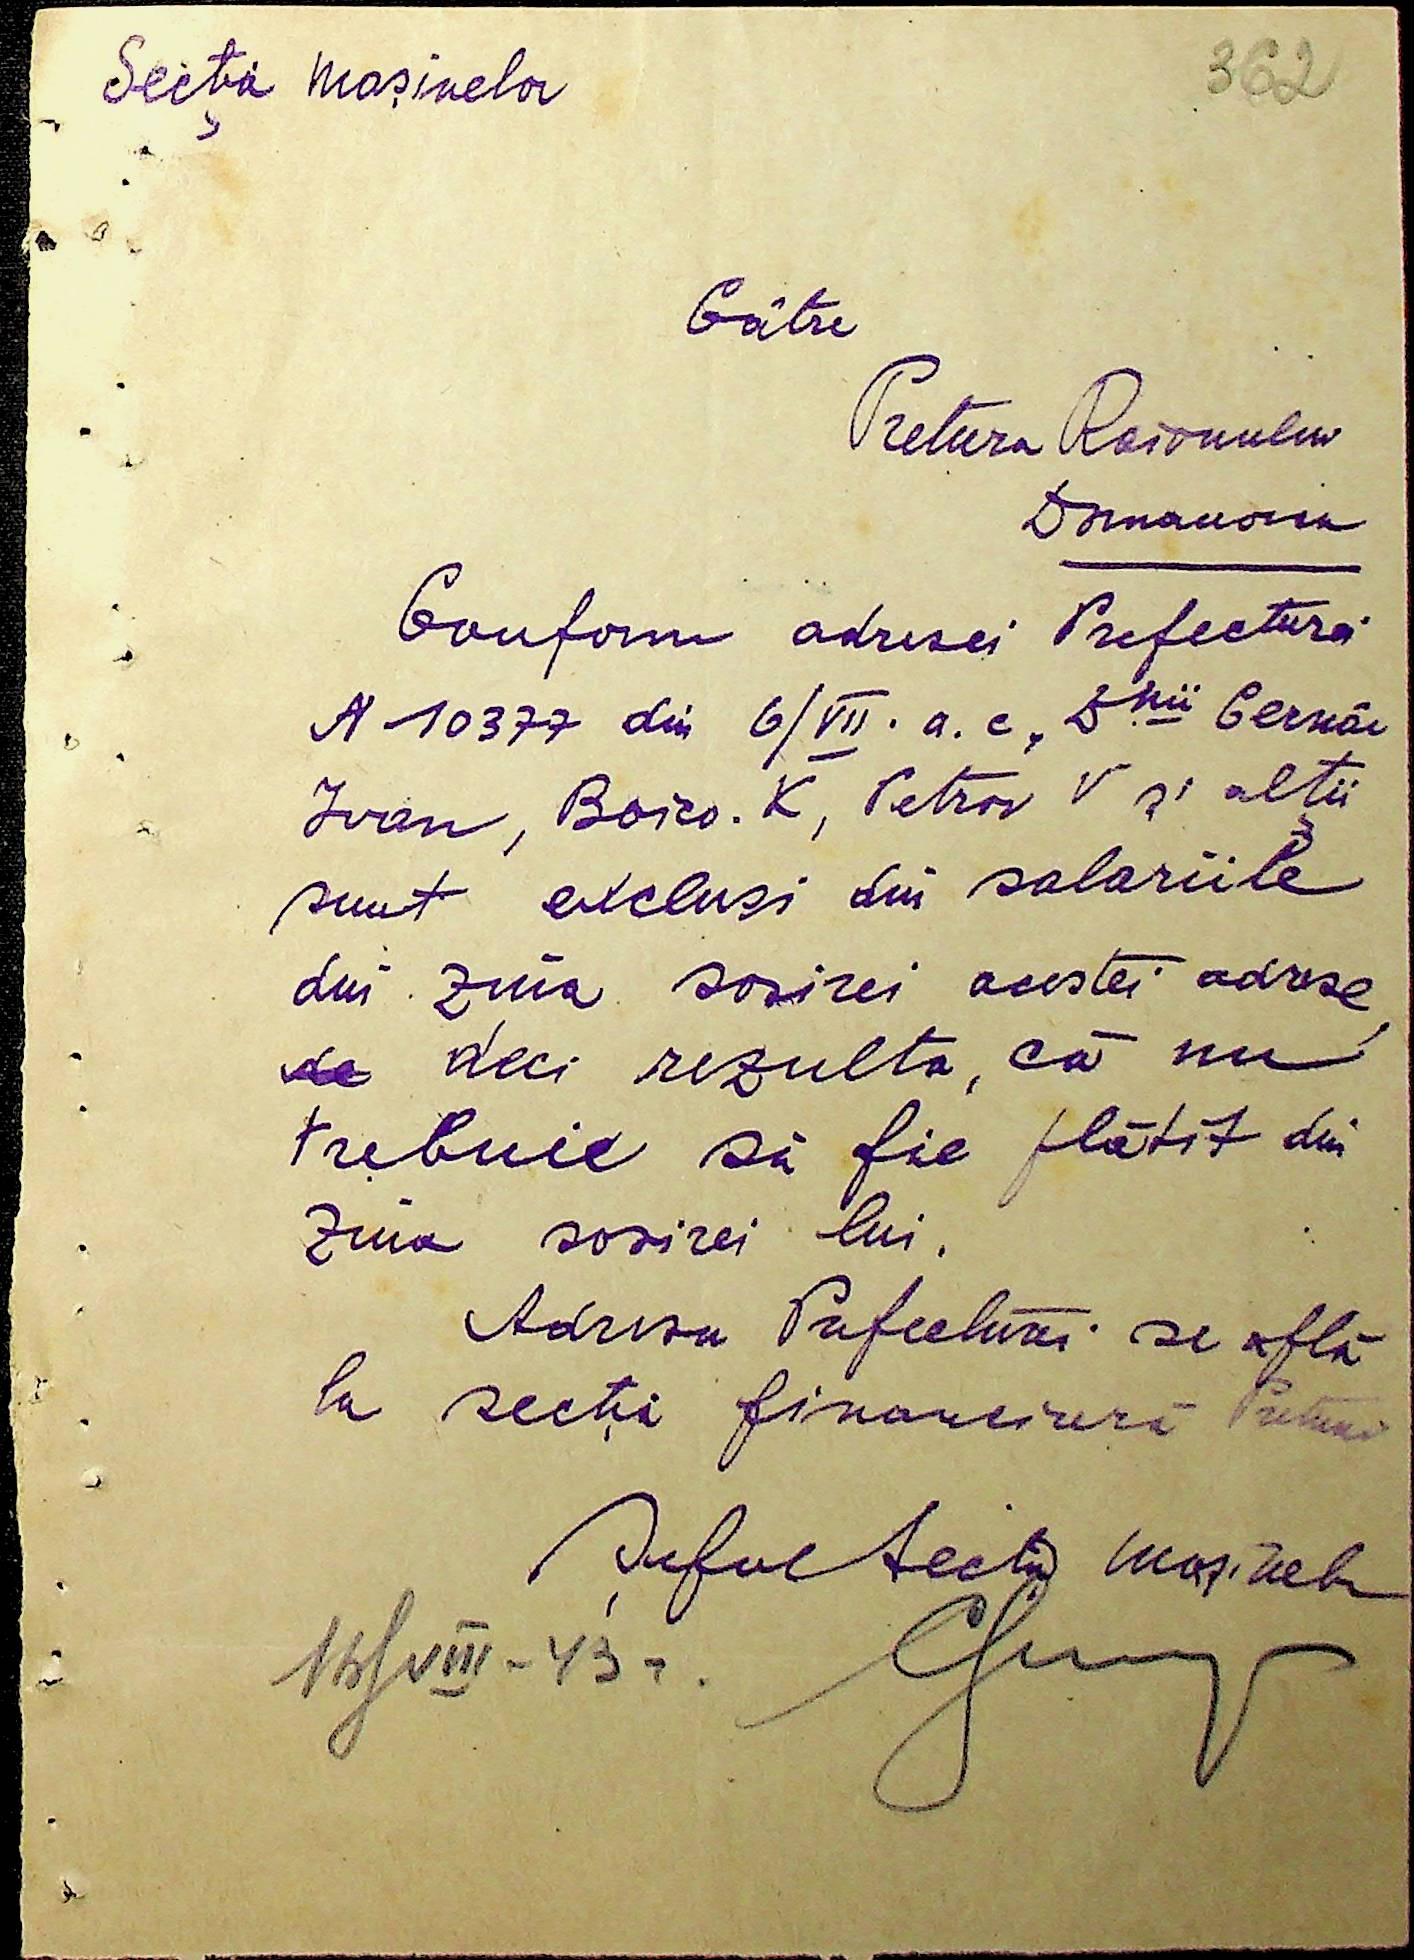 Secția Mașinelor
362
Către
Pretura Raionului
Domanovca
Conform adresei Prefecturei
N 10377 din 6/VII. a. c, Dnii Cernău
Ivan, Boico. K, Petrov V și alții
sunt excluși din salariile
din ziua sosirei acestei adrese,
deci rezulta, că nu
trebuie să fie plătit din
ziua sosirei lui.
Adresa Prefecturei se află
la secția financiură Preturei
Șeful Secții Mașinelor
VIII-43